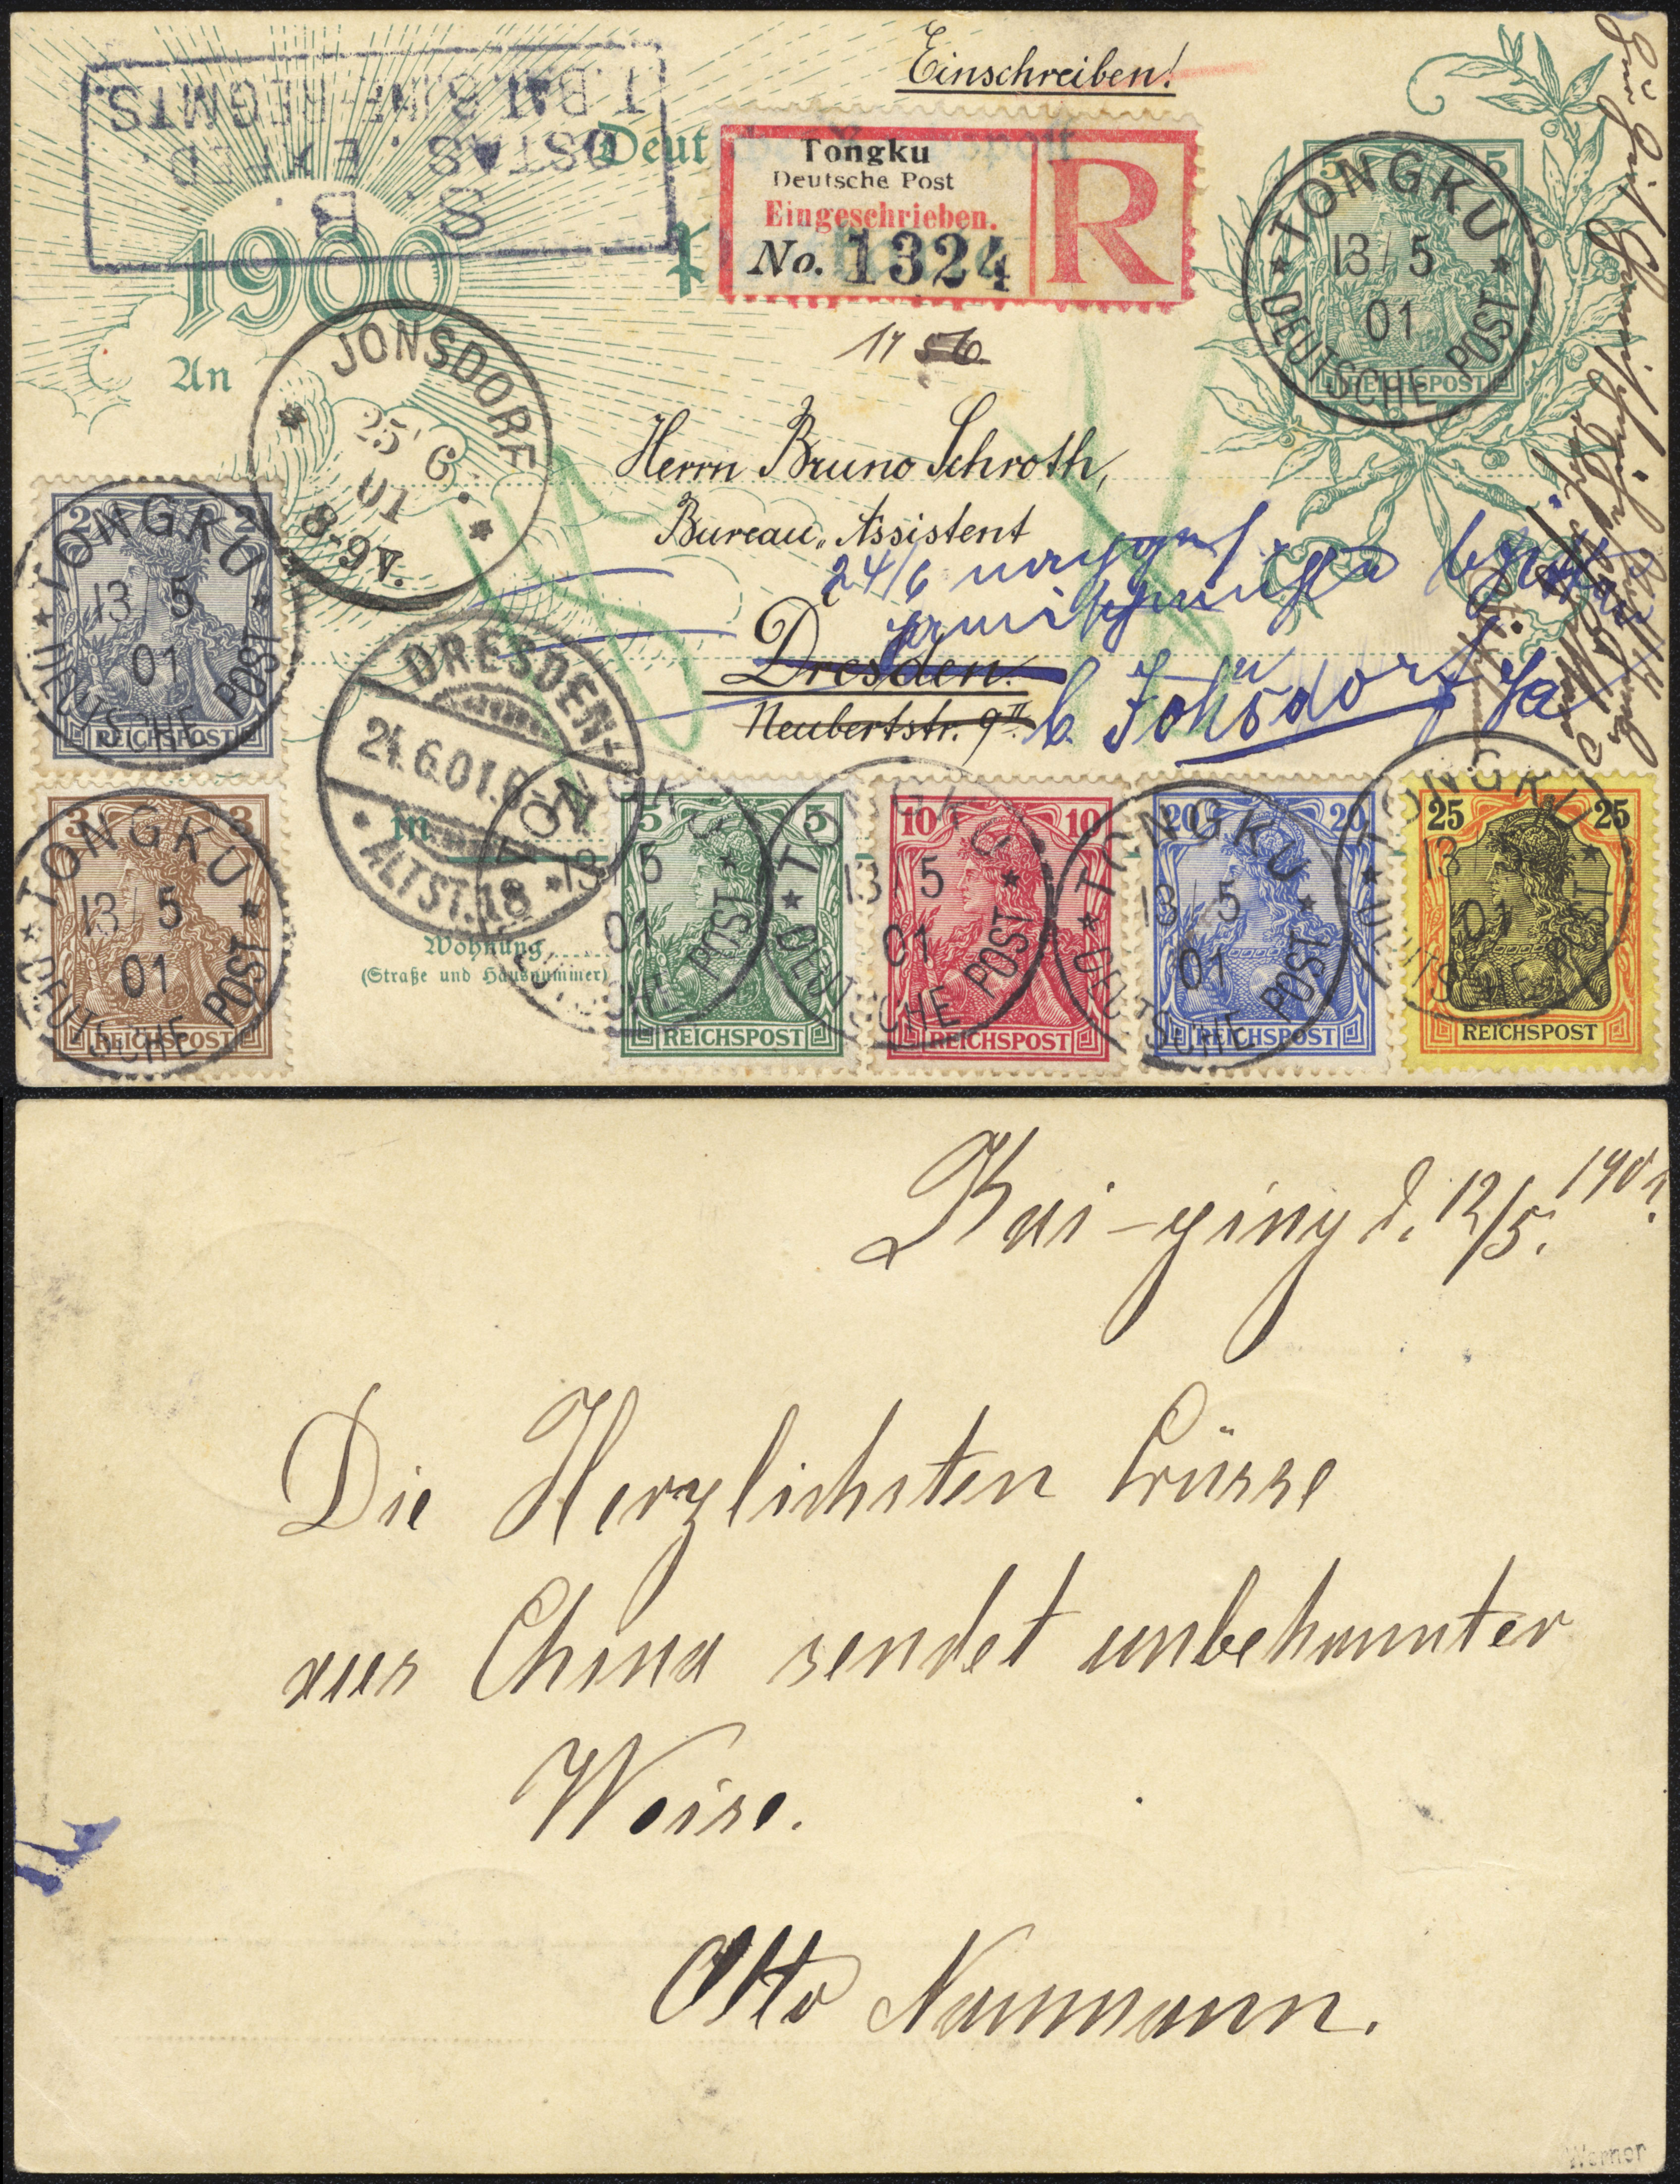 Einschreiben!
S. B.
OSTAS. EXPED.
I. BAT. 3. INF. REGMTS.
Deut
Tongku
Deutsche Post
Eingeschrieben.
No. 1324
R
1900
An
5 5
REICHSPOST
TONGKU
13/5
01
DEUTSCHE POST
JONSDORF
25 6.
01
8-9V.
Herrn Bruno Schroth,
Bureau-Assistent
24/6
Dresden.
Neubertstr. 9 II.
b. Jonsdorf i/Sa
2 2
REICHSPOST
TONGKU
13/5
01
DEUTSCHE POST
DRESDEN-
24.6.01.
ALTST. 18
in
Wohnung
(Straße und Hausnummer)
3 3
REICHSPOST
TONGKU
13/5
01
DEUTSCHE POST
5 5
REICHSPOST
TONGKU
13/5
01
DEUTSCHE POST
10 10
REICHSPOST
TONGKU
13/5
01
DEUTSCHE POST
20 20
REICHSPOST
TONGKU
13/5
01
DEUTSCHE POST
25 25
REICHSPOST
TONGKU
13
01
DEUTSCHE POST
Kai-ping d. 12/5. 1901.
Die Herzlichsten Grüsse
aus China sendet unbekannter
Weise.
Otto Naumann.
Werner